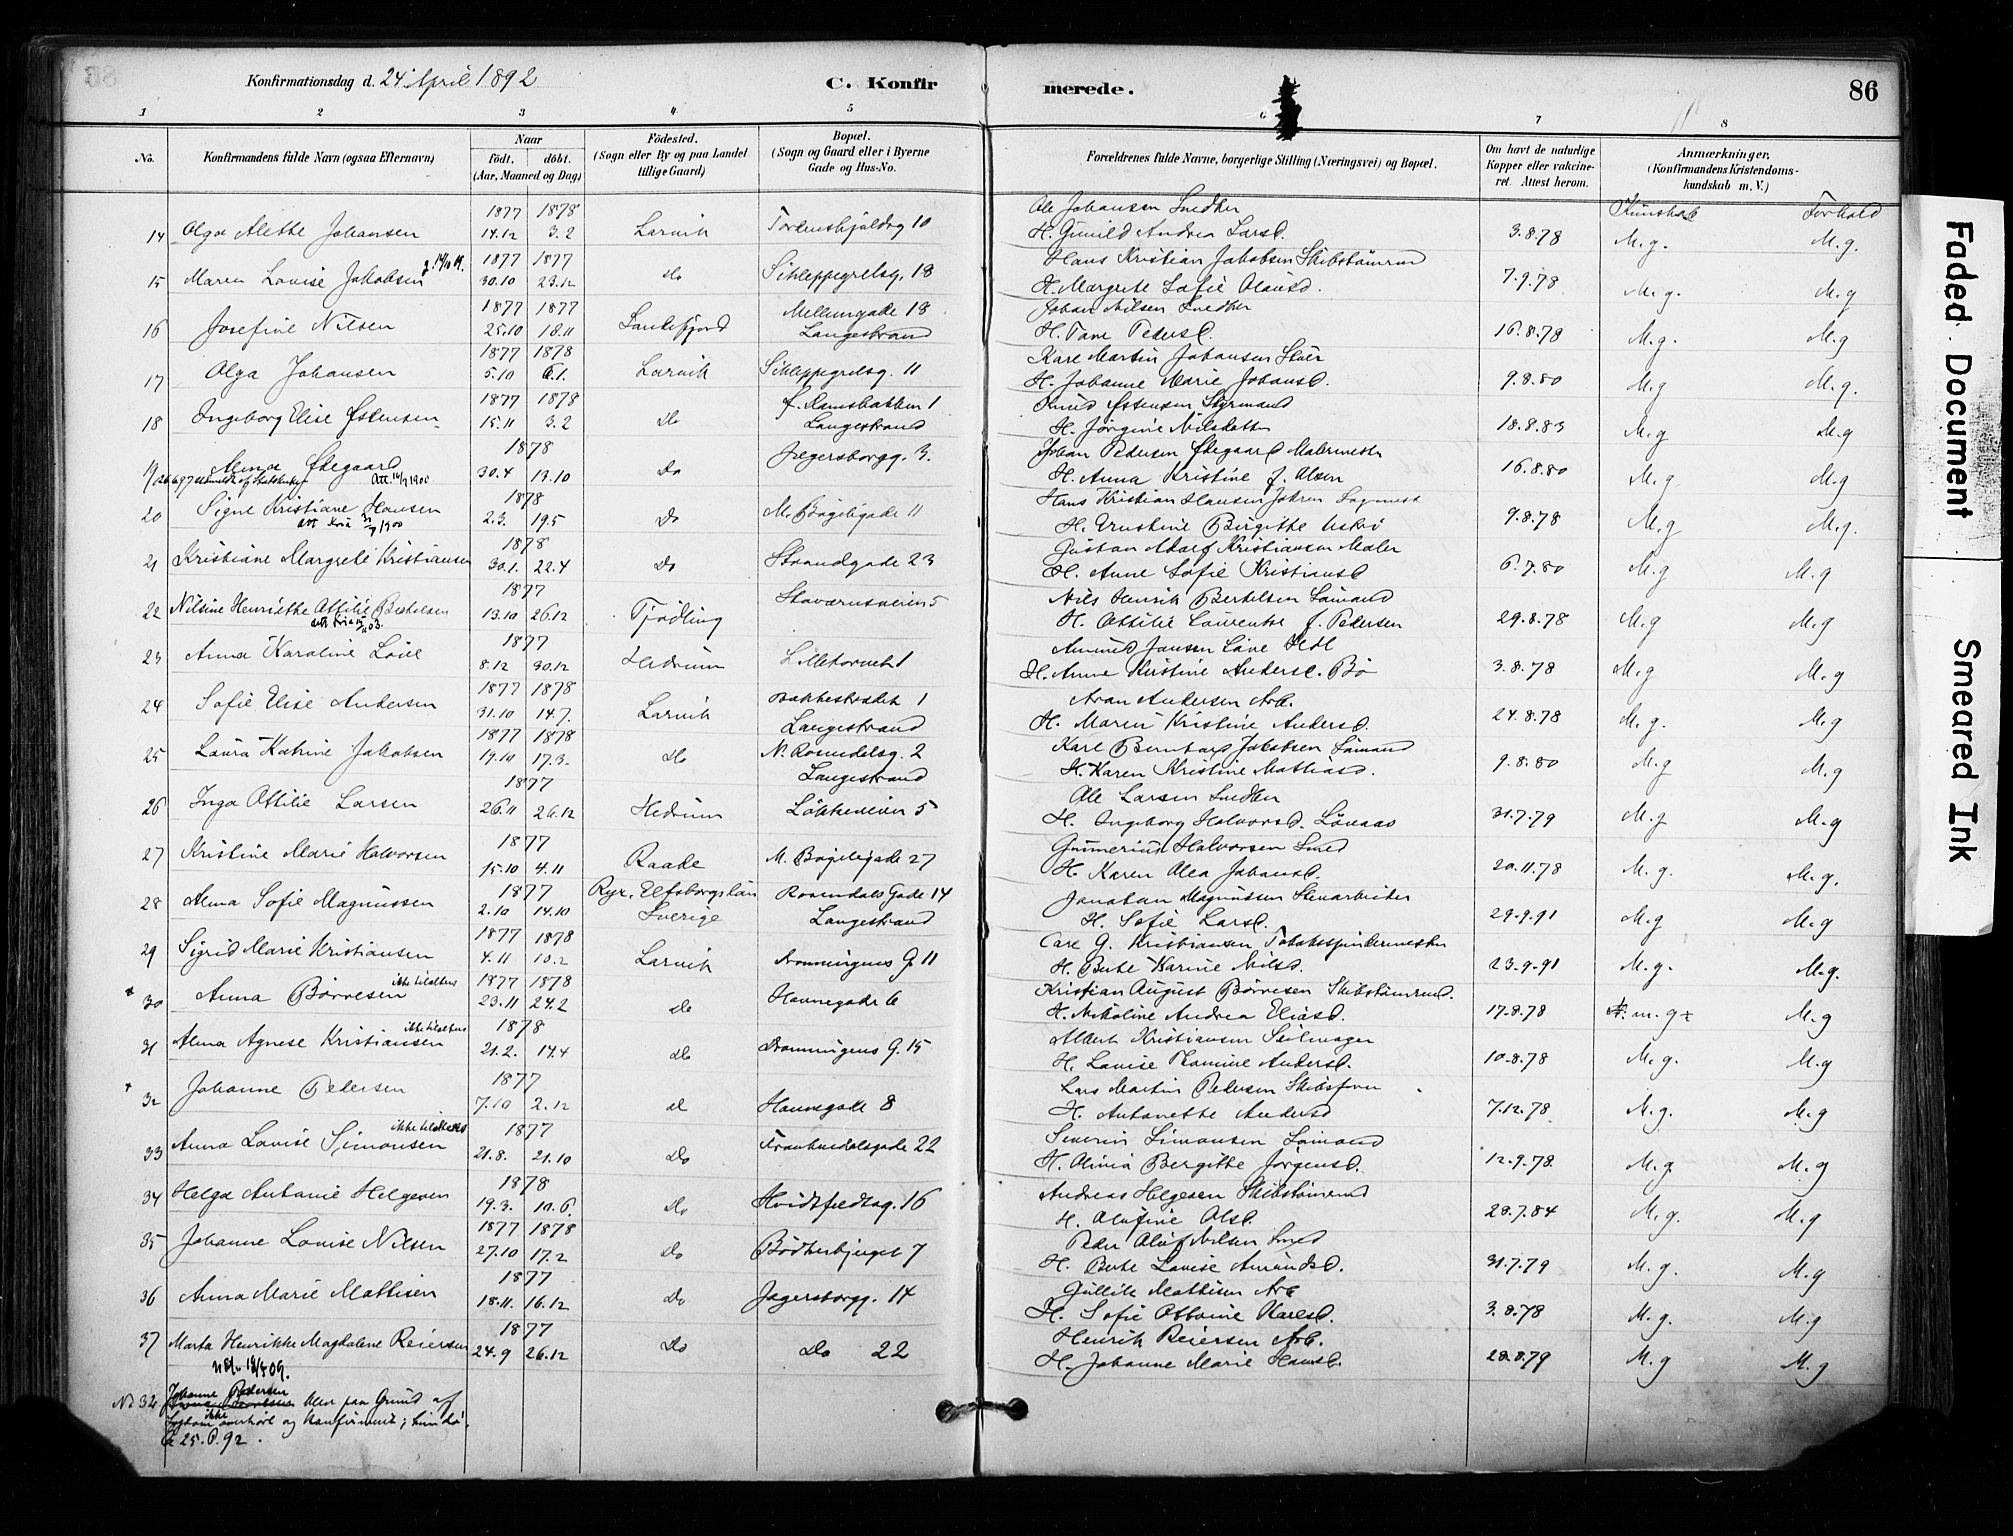 Konfirmationsdag d. 24 April 1892
C. Konfirmerede.
86
1 2 3 4 5 6 7 8
No. Konfirmandens fulde Navn (ogsaa Efternavn)
Naar
födt. döbt.
(Aar, Maaned og Dag)
Födested.
(Sogn eller By og paa Landet
tillige Gaard)
Bopæl.
(Sogn og Gaard eller i Byerne
Gade og Hus-No.
Forældrenes fulde Navne, borgerlige Stilling (Næringsvei) og Bopæl.
Om havt de naturlige
Kopper eller vakcine-
ret. Attest herom.
Anmærkninger,
(Konfirmandens Kristendoms-
kundskab m. V.)
Kundskab Forhold
1877 1878 Ole Johansen Snedker
14 Olga Alette Johansen 14.12 3.2 Larvik Tordenskjoldsg 10 H. Gunild Andrea Larsd. 3.8.78 M.g. M.g.
1877 1877 Hans Kristian Jakobsen Skibstømrmd
15 Maren Lovise Jakobsen 30.10 23.12 do Sikleppgrelsg. 18 H. Margrete Sofie Olausd. 7.9.78 M.g. M.g
1877 1877 Mellemgade 18 Johan Nilsen Snedker
16 Josefine Nilsen 25.10 18.11 Sandefjord Langestrand H. Tane Pedersd. 16.8.78 M.g. M.g
1877 1878 Karl Martin Johansen Stuer
17 Olga Johansen 5.10 6.1. Larvik Sikleppgrelsg. 11 H. Johanne Marie Johansd. 9.8.80 M.g M.g.
1877 1878 f. Ramsbakken 1 Knud Østensen Styrmand
18 Ingeborg Elise Østensen 15.11 3.2 do Langestrand H. Jørgine Nilsdatter 18.8.83 M.g M.g
1878 Johan Pedersen Ødegaard Malermester
19 Alma Ødegaard 30.4 13.10 Do Jægersborgg. 3. H. Anna Kristine f. Olsen 16.8.80 M.g M.g
1878 Hans Kristian Hansen
20 Signe Kristiane Hansen 2.3. 19.5 Do M. Bøgeligade 11 Birgitte 9.8.78 M.g M.g.
1878 Gustav Adolf Kristiansen Maler
21 Kristiane Margrete Kristiansen 30.1. 22.4 Do Strandgade 23 H. Anne Sofie Kristiansd 6.7.80 M.g M.g
1877 Nils Henrik Bertelsen Sømand
22 Nilsine Henriette Ottilie Bertelsen 13.10 26.12 Tjødling Stavernsveien 5 H. Ottilie Laurentse f. Pedersen 29.8.78 M.g M.g
1877 Amund Jansen Løve
23 Anna Karoline Löve 8.12 30.12 Hedrum Lilletorvet 1 H. Anne Kristine Andersd. Bø 3.8.78 M.g M.g
1877 1878 Bakkestrædet 1 Andersen Arb.
24 Sofie Elise Andersen 31.10 14.7. Larvik Langestrand H. Maren Kristine Andersd. 24.8.78 M.g. M.g
1877 1878 N. Rosendalsg. 2 Karl Berntarp Jakobsen Sømand
25 Laura Katrine Jakobsen 19.10 17.3. do Langestrand H. Karen Kristine Mathiasd. 9.8.80 M.g M.g
1877 Ole Larsen Snedker
26 Inga Ottilie Larsen 26.11 26.12 Hedrum Løkkeveien 5 H. Ingeborg Halvorsd. Lövaas 31.7.79 M.g M.g
1877 Gunnerius Halvorsen Smed
27 Kristine Marie Halvorsen 15.10 4.11 Raade M. Bøgeligade 27 H. Karen Olea Johansd. 20.11.78 M.g. M.g.
1877 Ryr. Elfsborgslän Rosendals Gade 14 Jonatan Magnussen Stenarbeider
28 Alma Sofie Magnussen 2.10 14.10 Sverige Langestrand H. Sofie Larsd. 29.9.91 M.g M.g
1877 1878 Carl G. Kristiansen Tobaksspindermester
29 Sigrid Marie Kristiansen 4.11 10.2 Larvik Dronningens G. 11 H. Berte Karine Nilsd. 23.9.91 M.g. M.g.
ikke tilalters 1877 1878 Kristian August Børresen Skibstømrmd.
30 Anna Børresen 23.11 24.2 do Havnegade 6 H. Nikoline Andrea Eliasd. 17.8.78 M.g
ikke tilalters 1878 Albert Kristiansen Seilmager
31 Alma Agnese Kristiansen 21.2. 14.4 do Dronningens G. 15 H. Lovise Thomine Andersd. 10.8.78 M.g. M.g
1877 Lars Martin Pedersen Skibsfører
32 Johanne Pedersen 7.10 2.12 do Havnegade 8 H. Antonette Andersd 7.12.78 M.g. M.g
ikke tilalters 1877 Severin Simonsen Sømand
33 Anna Lovise Simonsen 21.8. 21.10 Do Trankedalsgade 22 H. Olivia Bergitte Jørgensd. 12.9.78 M.g. M.g
1878 Andreas Helgesen Skibstømrmd
34 Helga Antonie Helgesen 19.3. 10.6. Do Hvidtfeldtsg. 16 H. Olufine Olsd. 28.7.84 M.g. M.g
1877 1878 Peder Oluf Nilsen Smed
35 Johanne Lovise Nilsen 27.10 17.2 Do Bødkerbjerget 7 H. Berte Lovise Amundsd. 31.7.79 M.g. M.g
1877 Gullik Mathisen Arb
36 Anna Marie Mattisen 18.11. 16.12 Do Jægersborgg. 14 H. Sofie Ottomine Karlsd. 3.8.78 M.g. M.g
1877 Henrik Reiersen Arb.
37 Marta Henrikke Magdalene Reiersen 24.9 26.12 Do Do 22 H. Johanne Marie Hansd. 28.8.79 M.g M.g
No 32 Johanne Pedersen blev paa Grund af
Sygdom ikke overhørt og konfirmert;
25.P.92.
Faded Document
Smeared Ink